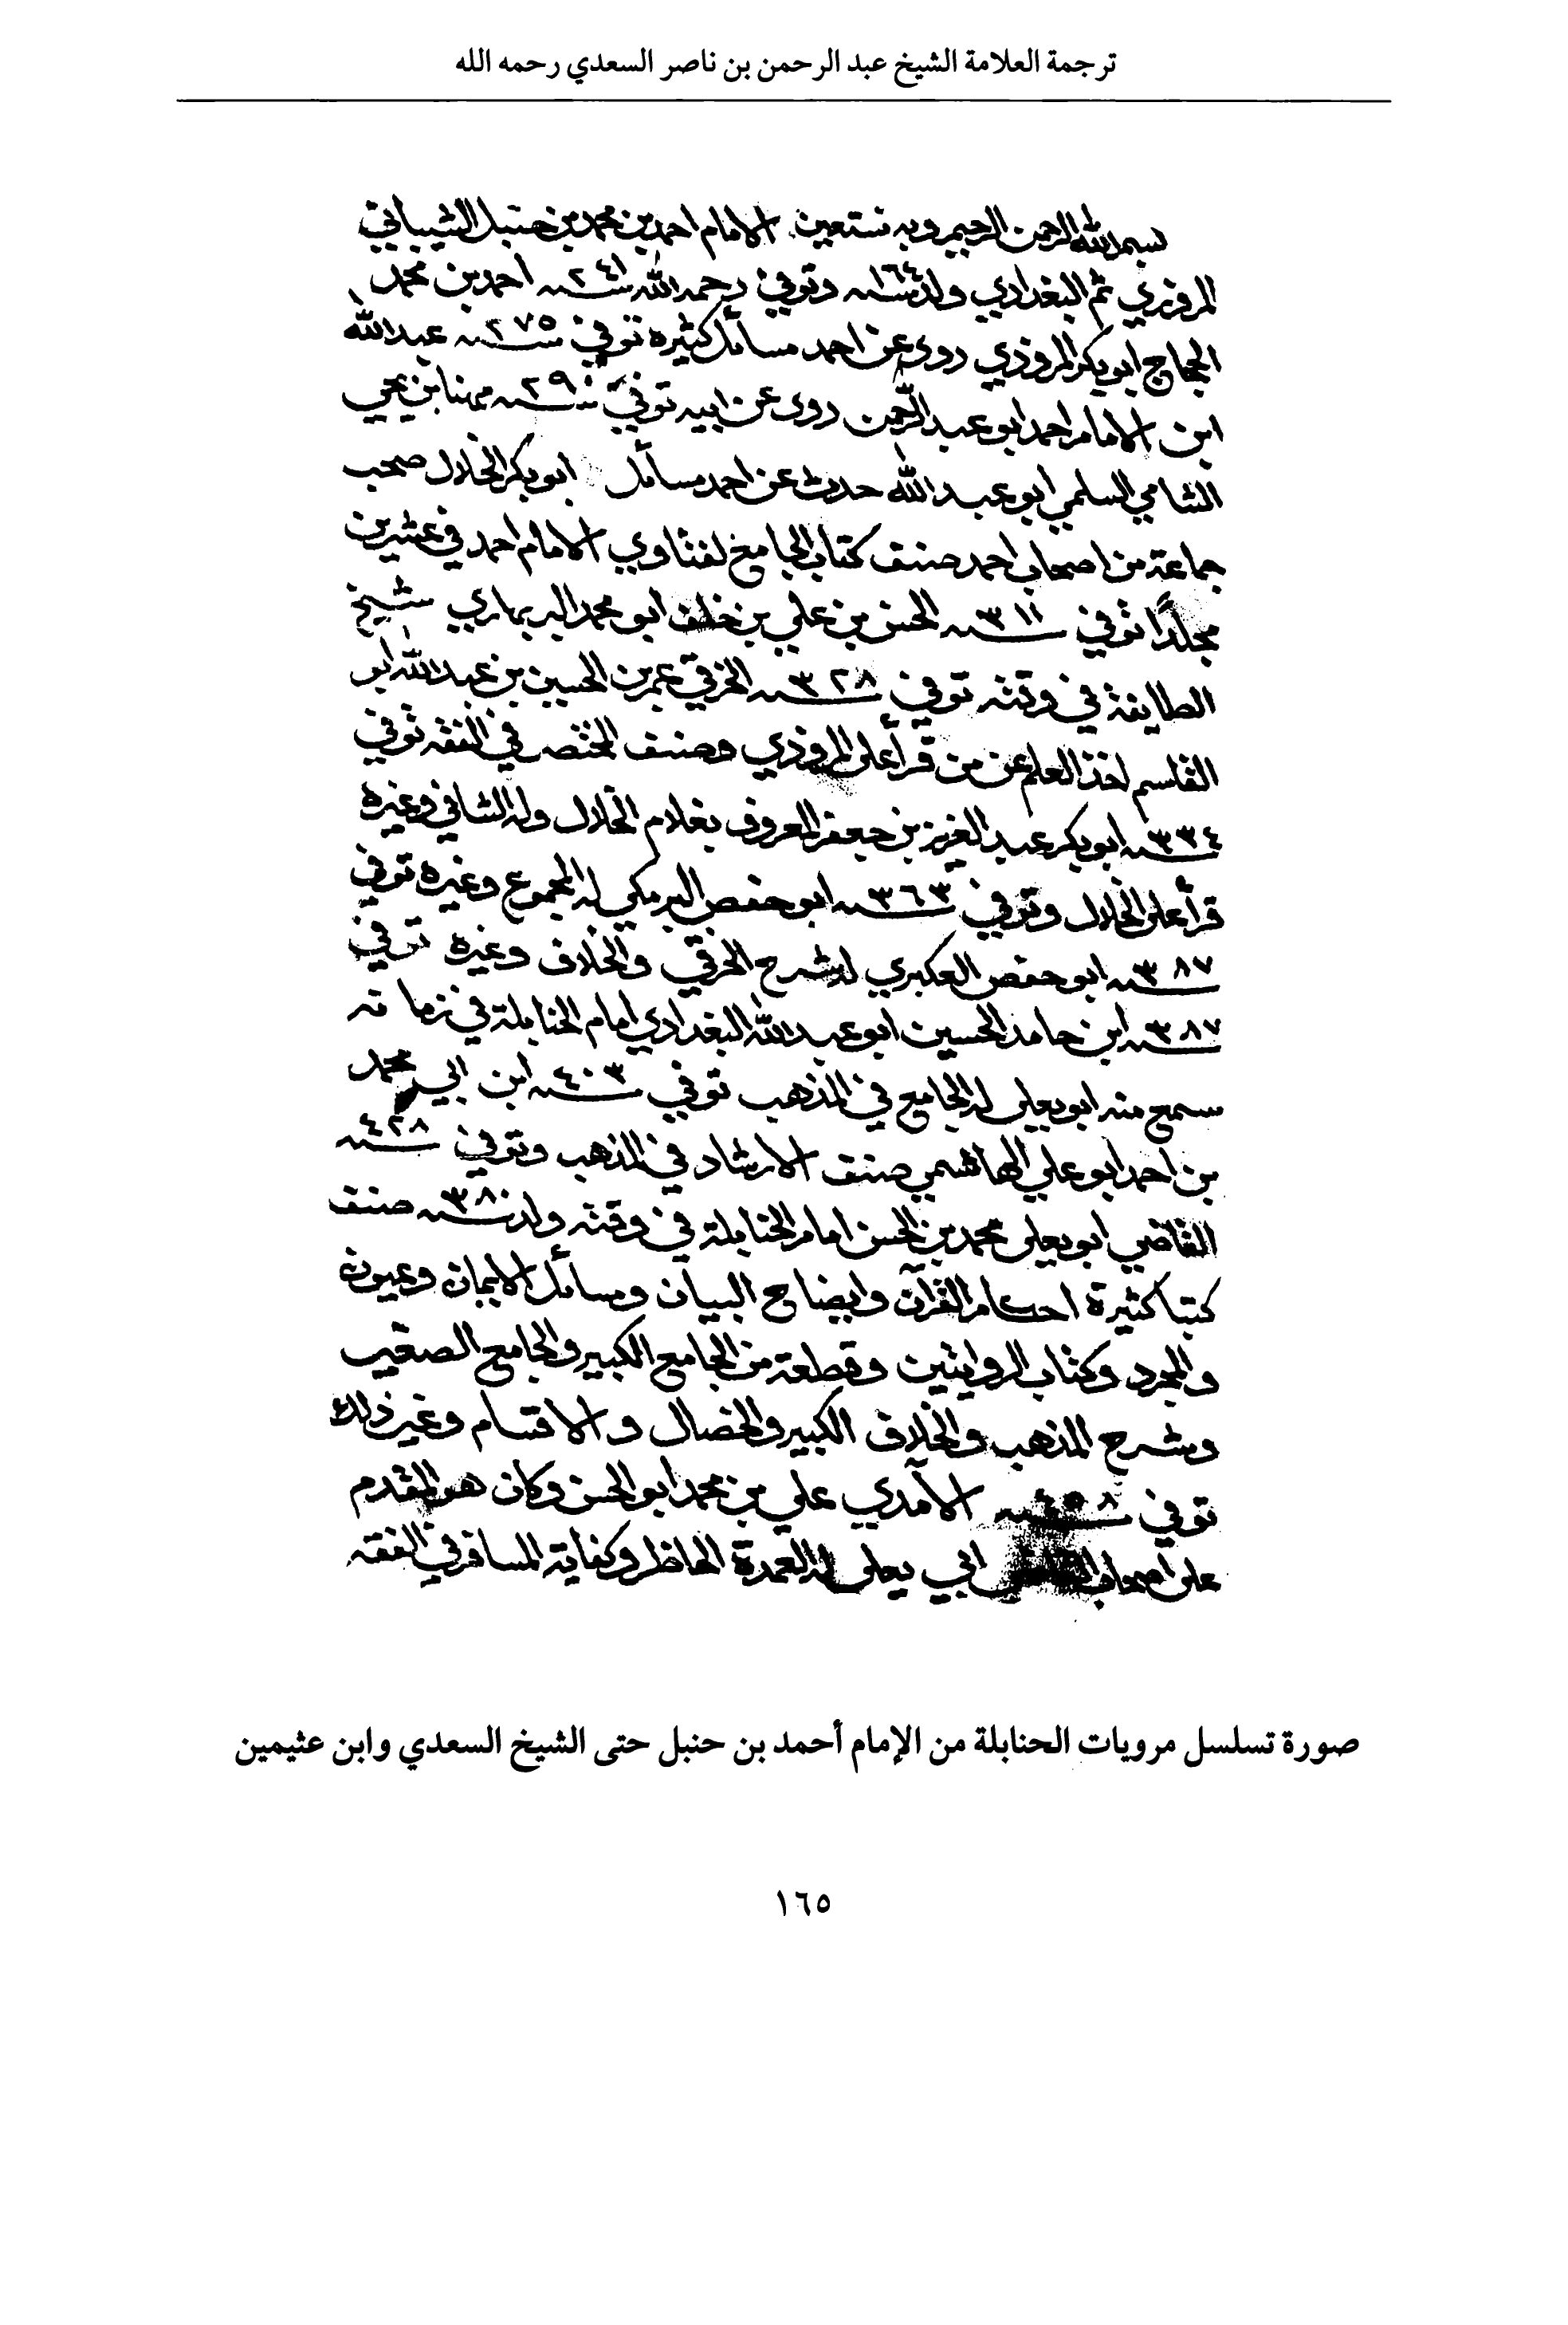 ترجمة العلامة الشيخ عبد الرحمن بن ناصر السعدي رحمه الله
بسم الله الرحمن الرحيم وبه نستعين الامام احمد بن محمد بن حنبل الشيباني
المروزي ثم البغدادي ولد سنة ١٦٤ وتوفي رحمه الله سنة ٢٤١ احمد بن محمد
الحجاج ابو بكر المروذي روى عن احمد مسائل كثيره توفي سنة ٢٧٥ عبد الله
ابن الامام احمد ابو عبد الرحمن روى عن ابيه توفي سنة ٢٩٠ مهنا بن يحيى
الشامي السلمي ابو عبد الله حدث عن احمد مسائل ابو بكر الخلال صحب
جماعة من اصحاب احمد صنف كتاب الجامع لفتاوي الامام احمد في عشرين
مجلداً توفي سنة ٣١١ الحسن بن علي بن خلف ابو محمد البربهاري شيخ
الطايفة في وقته توفي سنة ٣٢٨ الخرقي عمر بن الحسين بن عبد الله ابو
القاسم اخذ العلم عن من قرأ على المروذي وصنف المختصر في الفقه توفي
سنة ٣٣٤ ابو بكر عبد العزيز بن جعفر المعروف بغلام الخلال وله الشافي وغيره
قرأ على الخلال وتوفي سنة ٣٦٣ ابو حفص البرمكي له المجموع وغيره توفي
سنة ٣٨٧ ابو حفص العكبري له شرح الخرقي والخلاف وغيره توفي
سنة ٣٨٧ ابن حامد الحسين ابو عبد الله البغدادي امام الحنابلة في زمانه
سمع منه ابو يعلى له الجامع في المذهب توفي سنة ٤٠٣ ابن ابي محمد
بن احمد ابو علي الهاشمي صنف الارشاد في المذهب وتوفي سنة ٤٢٨
القاضي ابو يعلى محمد بن الحسن امام الحنابلة في وقته ولد سنة ٣٨٠ صنف
كتبا كثيرة احكام القرآن وايضاح البيان ومسائل الايمان وعيون
والمجرد وكتاب الروايتين وقطعة من الجامع الكبير والجامع الصغير
وشرح المذهب والخلاف الكبير والخصال والاقسام وغير ذلك
توفي سنة ٤٥٨ الآمدي علي بن محمد ابو الحسن وكان هو المقدم
على اصحاب القاضي ابي يعلى له العمدة الحاظر وكفاية المسافر في الفقه
صورة تسلسل مرويات الحنابلة من الإمام أحمد بن حنبل حتى الشيخ السعدي وابن عثيمين
١٦٥